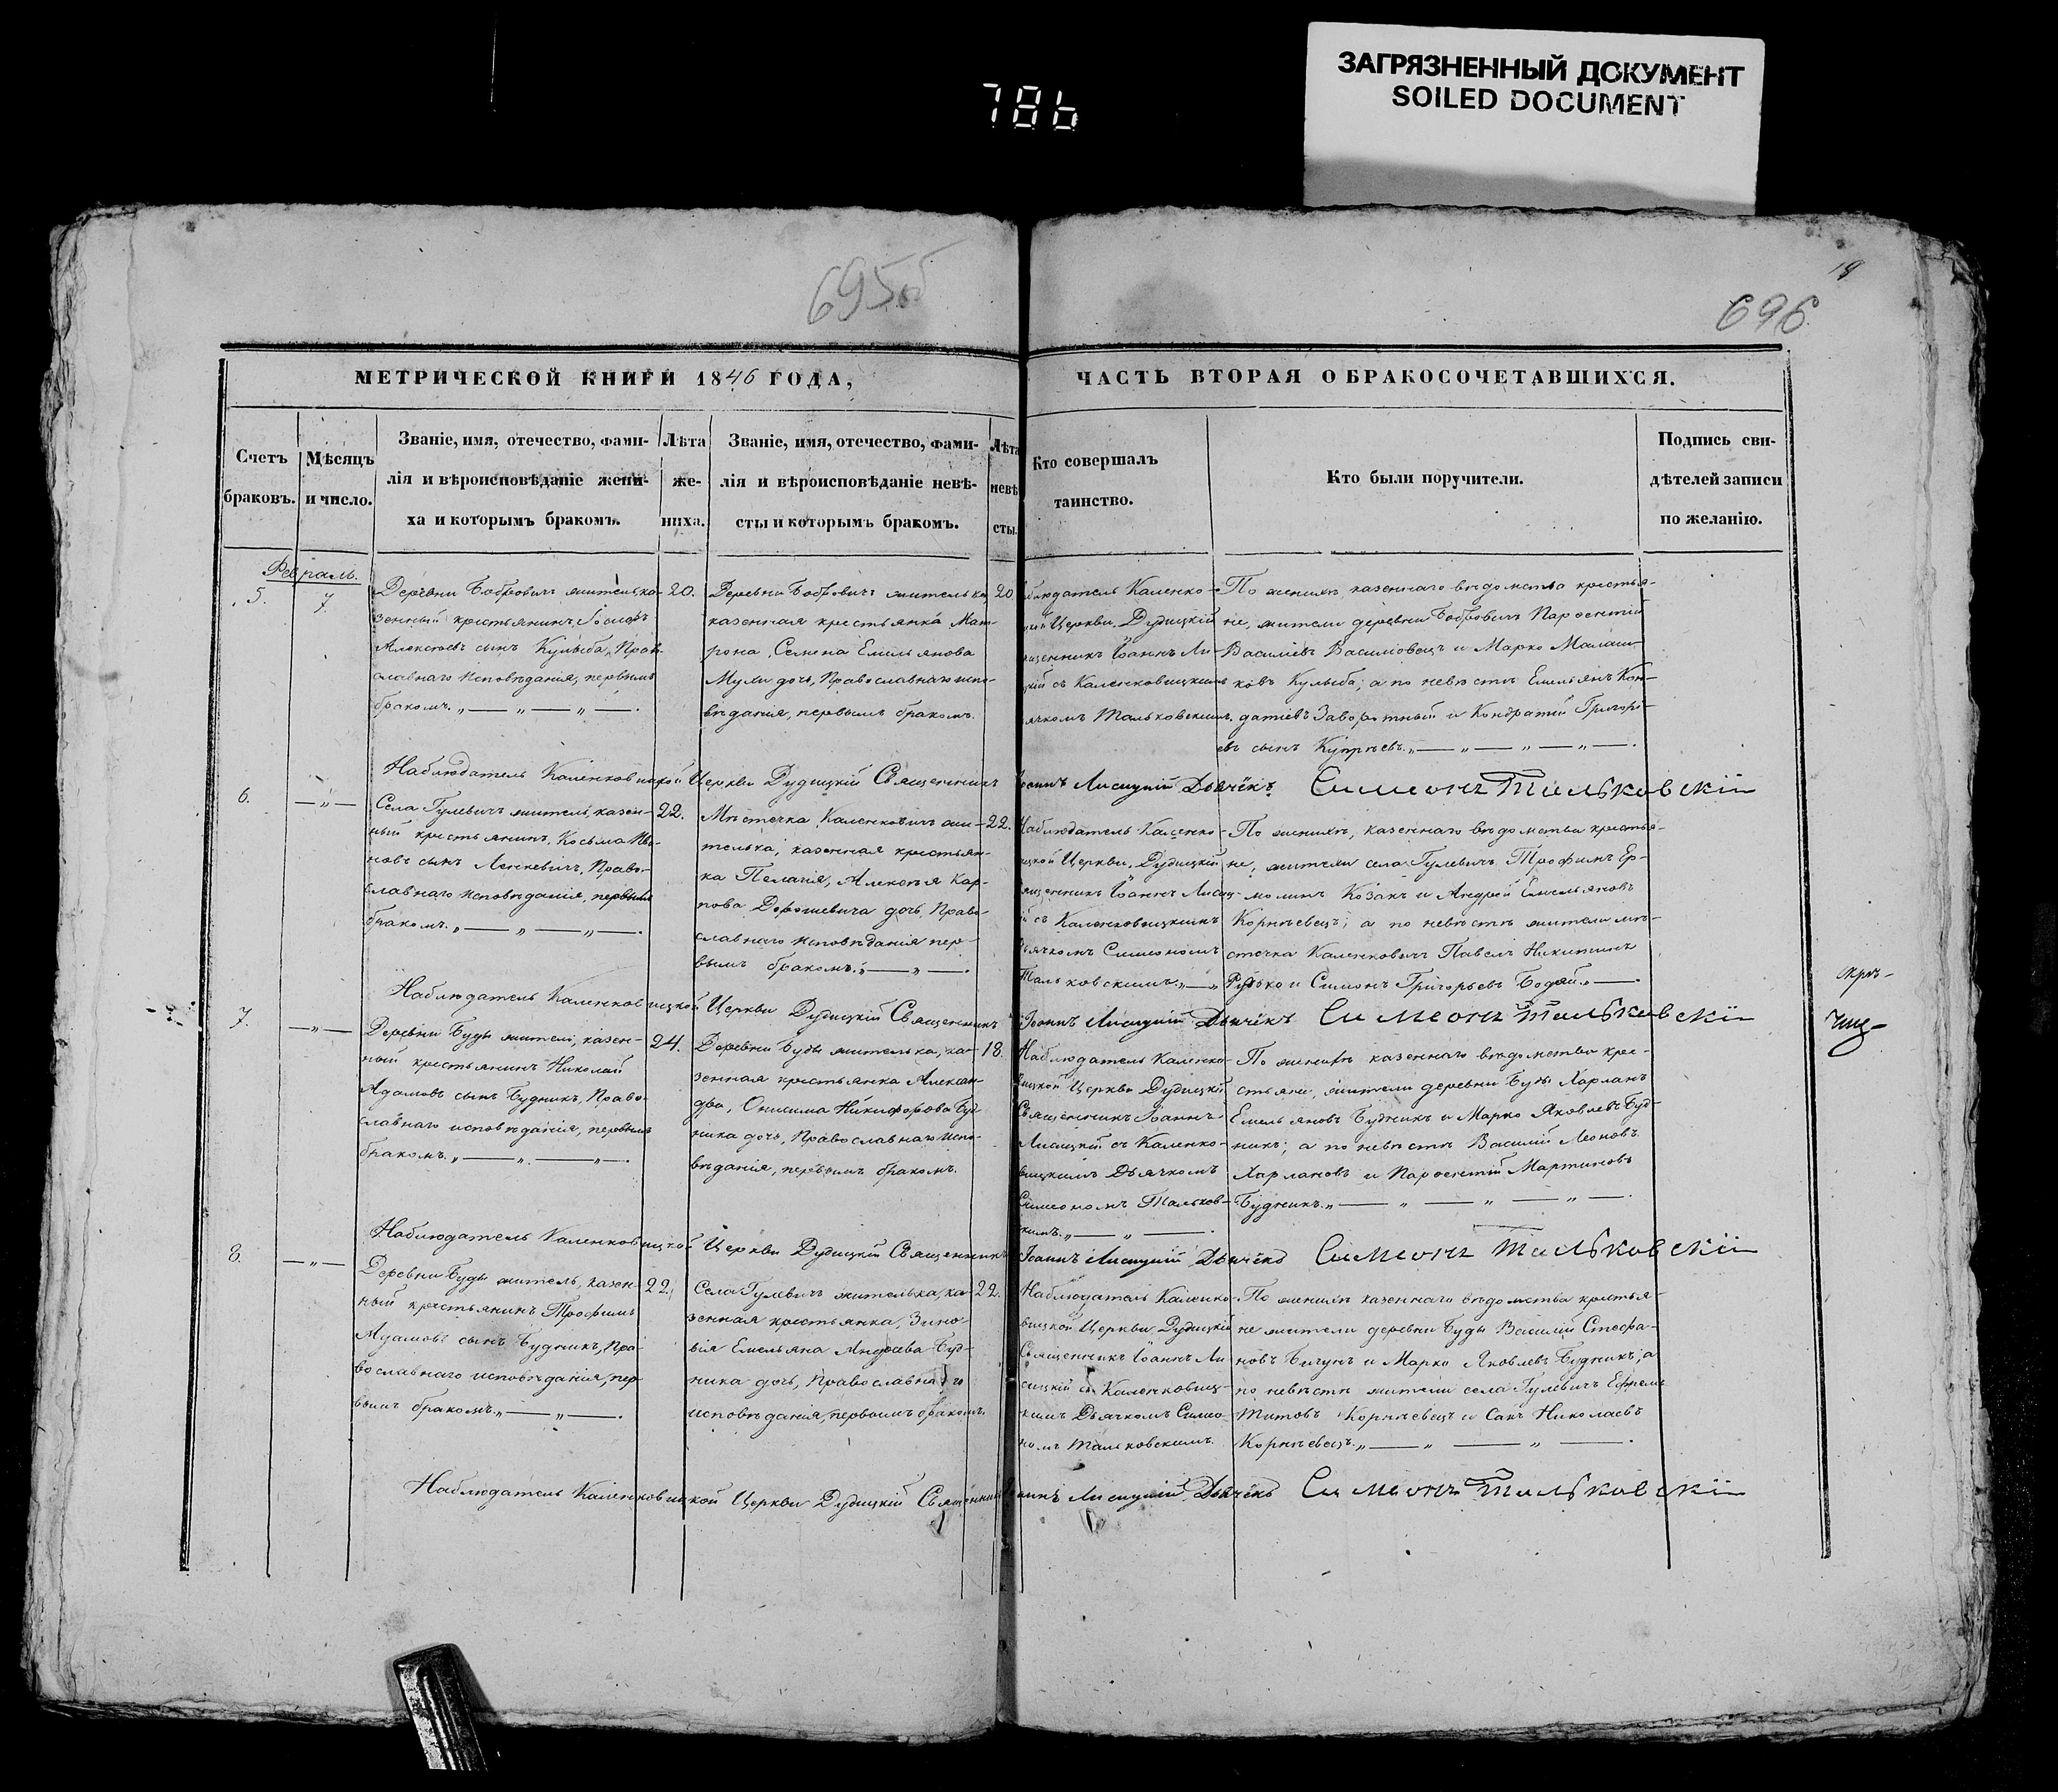 786
ЗАГРЯЗНЕННЫЙ ДОКУМЕНТ
SOILED DOCUMENT
695об
19
696
МЕТРИЧЕСКОЙ КНИГИ 1846 ГОДА,
Счетъ
браковъ.
Мѣсяцъ
и число.
Званіе, имя, отечество, фами-
лія и вѣроисповѣданіе жени-
ха и которымъ бракомъ.
Лѣта
же-
ниха.
Званіе, имя, отечество, фами-
лія и вѣроисповѣданіе невѣ-
сты и которымъ бракомъ.
Лѣта
невѣ
сты.
ЧАСТЬ ВТОРАЯ О БРАКОСОЧЕТАВШИХСЯ.
Кто совершалъ
таинство.
Кто были поручители.
Подпись сви-
дѣтелей записи
по желанію.
Февраль.
5.
7
Деревни Бобровичъ житель ка-
зенный крестьянинъ, Іосифъ
Алексѣевъ сынъ Кулыба, Прав-
славнаго исповѣданія, первымъ
бракомъ. „ — „ — „ — .
20.
Деревни Бобровичъ жителька,
казенная крестьянка Мат-
рона, Семена Емельянова
Мули дочь, Православнаго испо-
вѣданія, первымъ бракомъ.
20
блюдатель Каленко-
Церкви, Дудицкій
щенникъ Іоаннъ Ли-
цкій съ Каленковицкимъ
ячкомъ Тальковскимъ.
По женихѣ, казеннаго вѣдомства крестья-
не, жители деревни Бобровичъ Парфентій
Василіевъ Василіовецъ и Марко Малаш-
ковъ Кулыба; а по невѣстѣ Емельянъ Кон-
датіевъ Заворотный и Кондратій Григорі-
евъ сынъ Купрѣевъ. „ — „ — „ — „ — .
Наблюдатель Каленковицкой Церкви Дудицкій Священникъ Іоаннъ Лисицкій Дьячёкъ Симеонъ Тальковскій
6.
— „ —
Села Гулевичъ житель, казен-
ный крестьянинъ, Косьма Ива-
новъ сынъ Ленкевичъ, Право-
славнаго исповѣданія, первымъ
бракомъ. „ — „ — „ — .
22.
Мѣстечка Каленковичъ жи-
телька, казенная крестьян-
ка Пелагія, Алексѣя Кар-
пова Дорошевича дочь, Право-
славнаго исповѣданія пер-
вымъ бракомъ. „ — „ — .
22.
Наблюдатель Каленко-
ицкой Церкви, Дудицкій
вященникъ Іоаннъ Лисиц-
ій съ Каленковицкимъ
Дьячкомъ Симеономъ
Тальковскимъ. „ — „
По женихѣ, казеннаго вѣдомства крестья-
не, жители села Гулевичъ Трофимъ Ер-
молинъ Козакъ и Андрей Емельяновъ
Корнѣевецъ; а по невѣстѣ жители мѣ-
стечка Каленковичъ Павелъ Никитинъ
Рудько и Симонъ Григорьевъ Бодяй. „ — .
Наблюдатель Каленковицкой Церкви Дудицкій Священникъ Іоаннъ Лисицкій Дьячёкъ Симеонъ Тальковскій
7.
— „ —
Деревни Буды житель, казен-
ный крестьянинъ Николай
Адамовъ сынъ Будникъ, Право-
славнаго исповѣданія, первымъ
бракомъ. „ — „ — „ — .
24.
Деревни Буды жителька, ка-
зенная крестьянка Алексан-
дра, Онисима Никифорова Буд-
ника дочь, Православнаго испо-
вѣданія, первымъ бракомъ.
18.
Наблюдатель Каленко-
вицкой Церкви Дудицкій
Священникъ Іоаннъ
Лисицкій съ Каленко-
вицкимъ Дьячкомъ
Симеономъ Тальков-
скимъ. „ — „ — .
По женихѣ казеннаго вѣдомства крес-
тьяне, жители деревни Буды Харланъ
Емельяновъ Будникъ и Марко Яковлевъ Буд-
никъ; а по невѣстѣ Василій Леоновъ
Харлановъ и Парфентій Мартиновъ
Будникъ. „ — „ — „ — „ — .
Наблюдатель Каленковицкой Церкви Дудицкій Священникъ Іоаннъ Лисицкій Дьячёкъ Симеонъ Тальковскій
8.
— „ —
Деревни Буды житель, казен-
ный крестьянинъ Трофимъ
Адамовъ сынъ Будникъ, Пра-
вославнаго исповѣданія, пер-
вымъ бракомъ. „ — „ — .
22.
Села Гулевичъ жителька, ка-
зенная крестьянка, Зино-
вія Емельяна Андреева Буд-
ника дочь, Православнаго
исповѣданія, первымъ бракомъ.
22.
Наблюдатель Каленко-
вицкой Церкви Дудицкій
Священникъ Іоаннъ Ли-
сицкій съ Каленковиц-
кимъ Дьячкомъ Симео-
номъ Тальковскимъ.
По женихѣ казеннаго вѣдомства крестья-
не жители деревни Буды Василій Стефа-
новъ Бигунъ и Марко Яковлевъ Будникъ; а
по невѣстѣ жители села Гулевичъ Ефремъ
Титовъ Корнѣевецъ и Сакъ Николаевъ
Корнѣевецъ. „ — „ — „ — .
Наблюдатель Каленковицкой Церкви Дудицкій Священникъ Іоаннъ Лисицкій Дьячёкъ Симеонъ Тальковскій